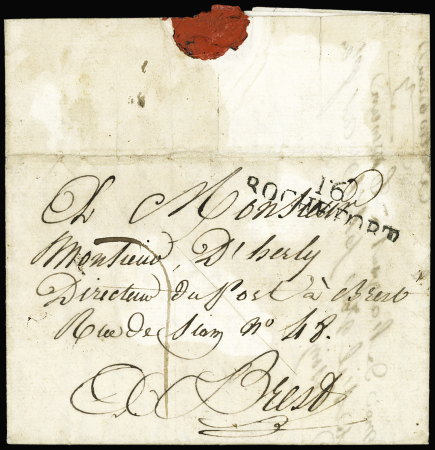 16
ROCHEFORT
A Monsieur
Monsieur D'herly
Directeur du Port à Brest
Rue de Siam n° 48.
A Brest